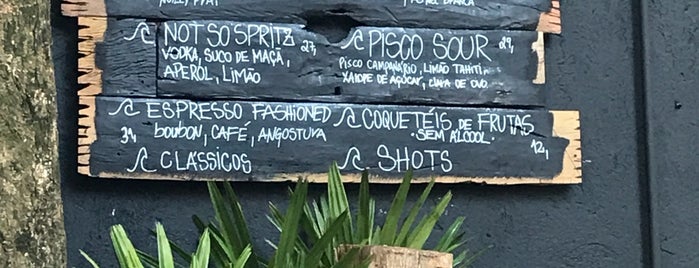 NOILLY PRAT
NOT SO SPRITZ 27,
VODKA, SUCO DE MAÇÃ,
APEROL, LIMÃO
PISCO SOUR 29,
PISCO CAMPANÁRIO, LIMÃO TAHITI
XAROPE DE AÇUCAR, CLARA DE OVO.
ESPRESSO FASHIONED
34 BOURBON, CAFÉ, ANGOSTURA
COQUETÉIS DE FRUTAS
• SEM ALCOOL • 12,
CLÁSSICOS
SHOTS